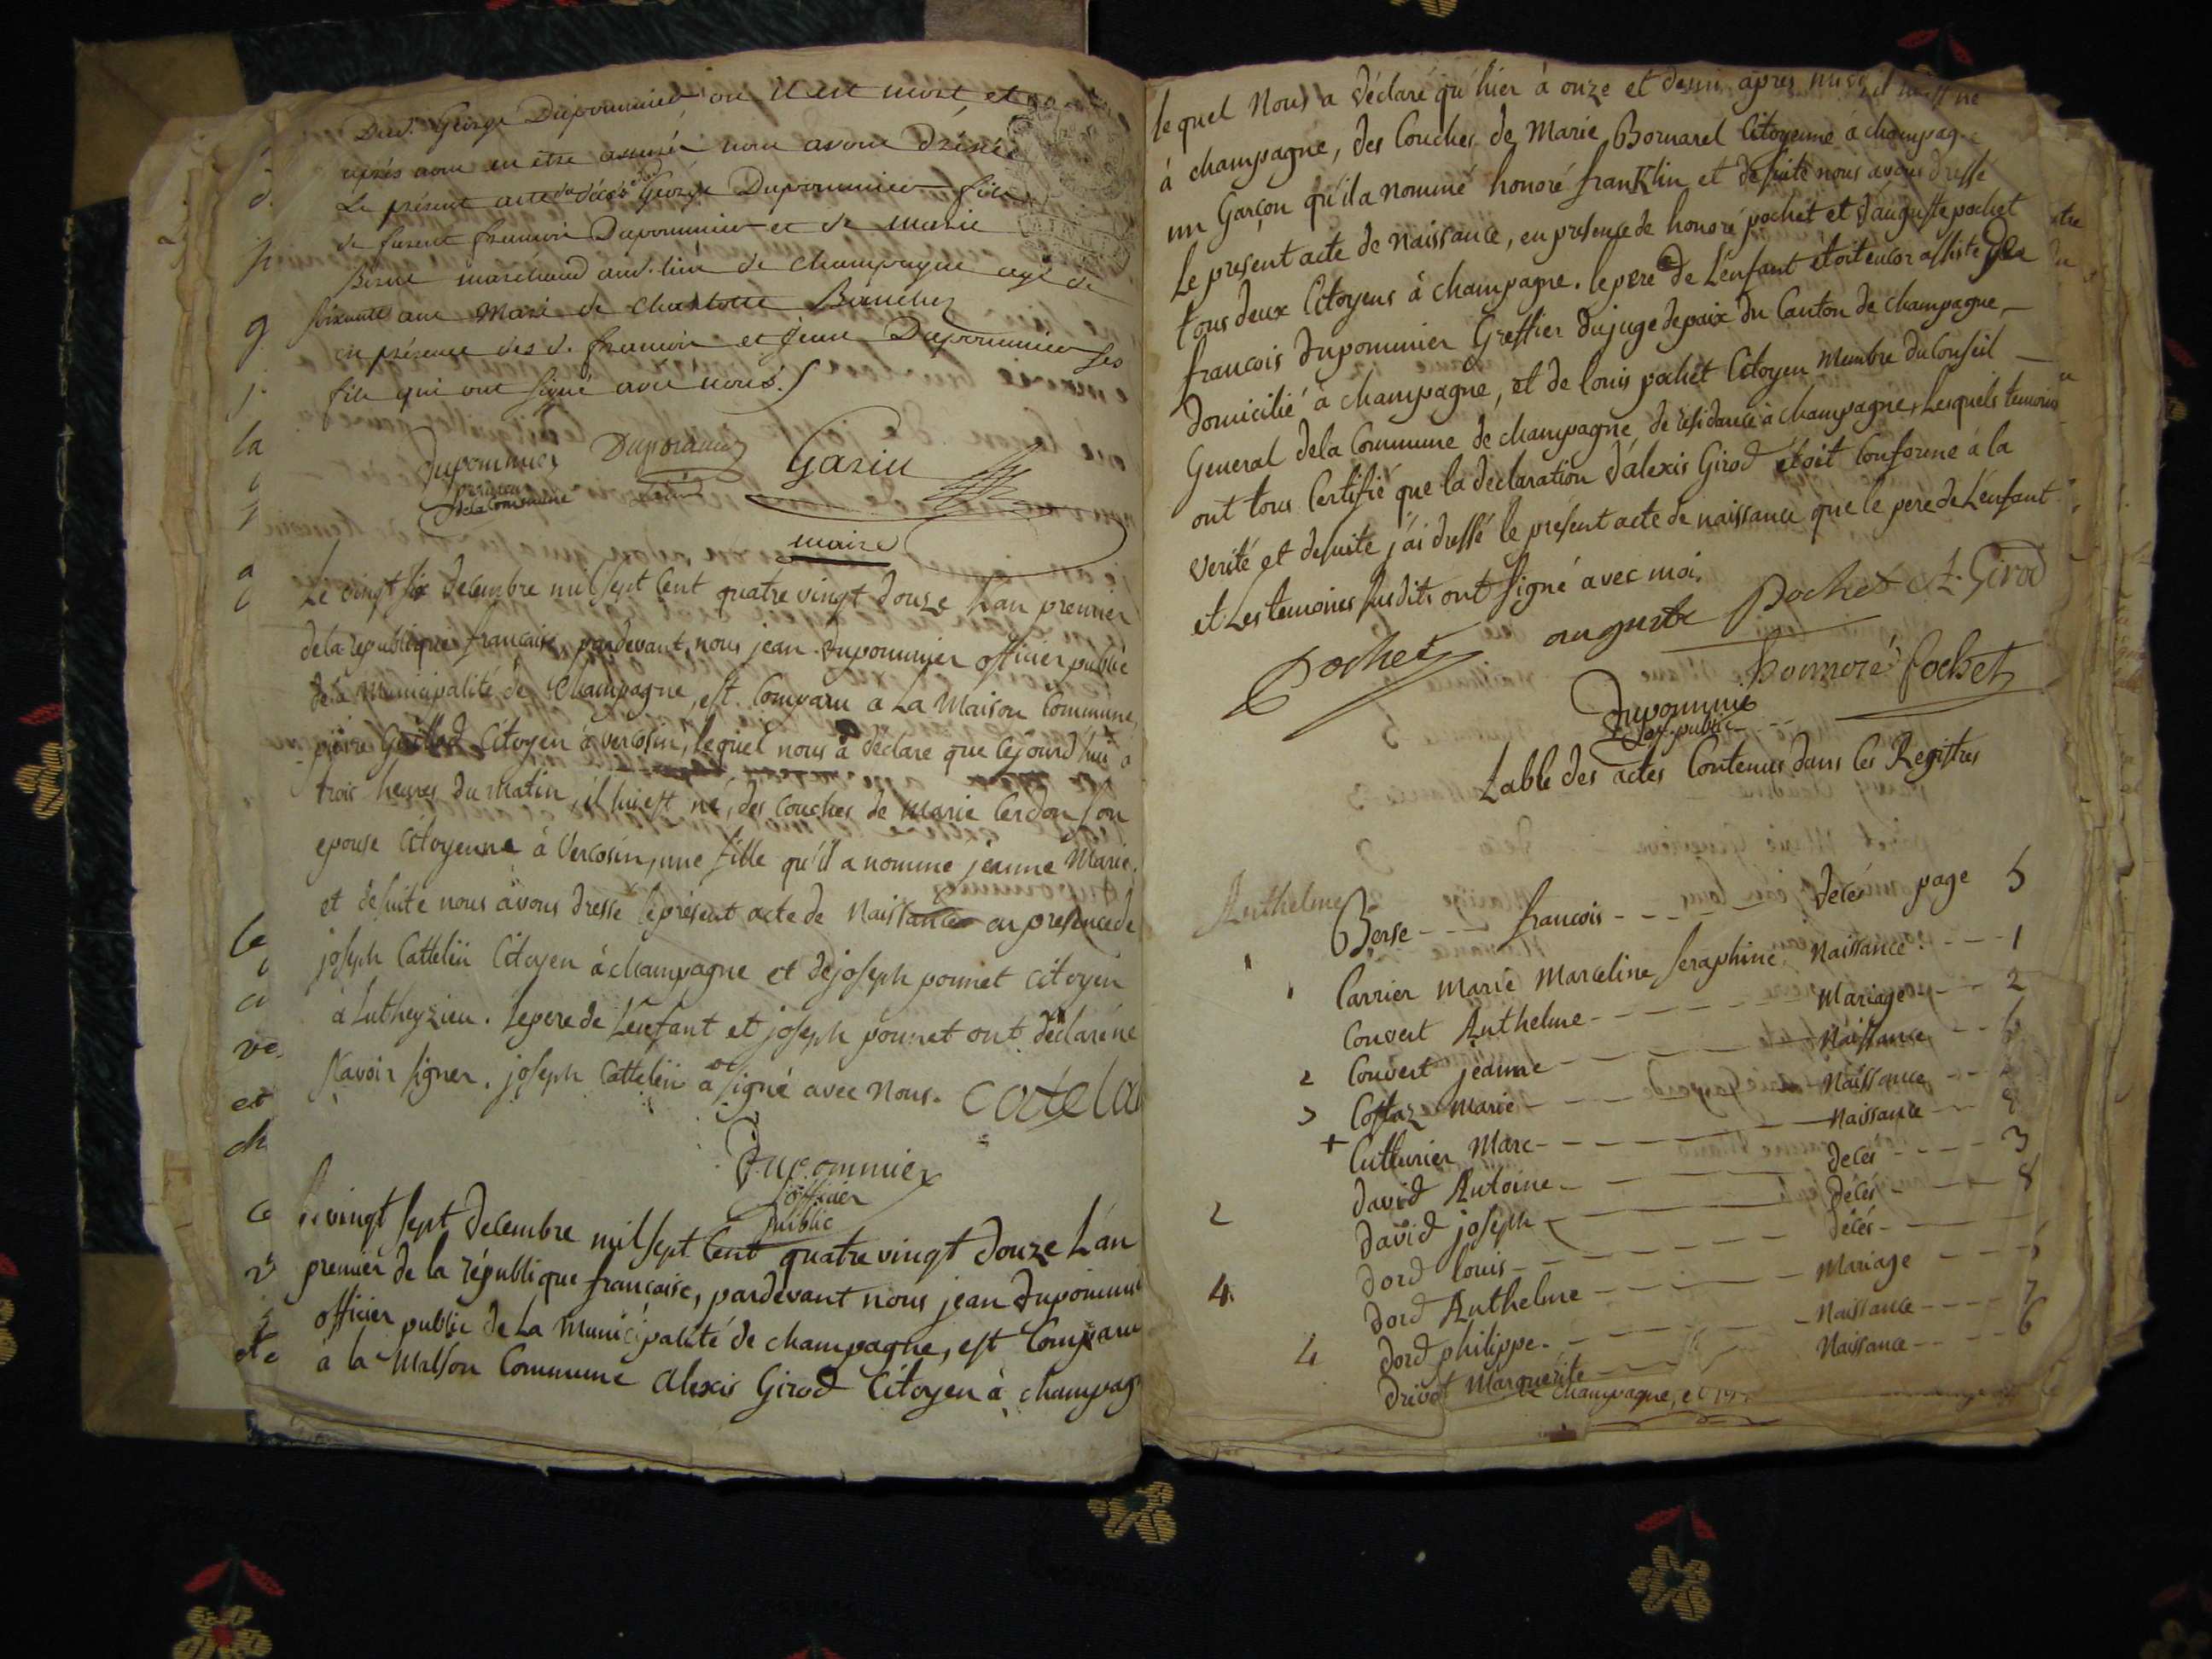 Dud. George Dupommier ou il est mort, et
après nous en être assuré nous avons dressé
Le présent acte du décès de George Dupommier fils
de furent françois Dupommier et de marie
marchand aud. lieu de champagne agé de
soixante ans Mari de Charlotte
en présence des d. françois et jean Dupommier ses
fils qui ont signé avec nous.
Dupommier Dupommier Garin
procureur
de la Commune
maire
Le vingt six decembre mil sept Cent quatre vingt douze L'an premier
de la republique francaise, pardevant nous jean Dupommier officier public
de la Municipalité de Champagne, est Comparu a La Maison Commune,
pierre Citoyen à vercosin, lequel nous a déclaré que cejourd'hui à
trois heures du Matin, il lui est né, des couches de Marie Cerdon son
epouse Citoyenne à Vercosin, une fille qu'il a nommé jeanne Marie.
et desuite nous avons dressé le présent acte de Naissance en presence de
joseph Cattelin Citoyen à champagne et de joseph pomet citoyen
à Lutheyzieu. le pere de L'enfant et joseph pomet ont déclaré ne
scavoir signer. joseph Cattelin a signé avec Nous. catela
Dupommier
officier
public
Le vingt sept decembre mil sept Cent quatre vingt douze L'an
premier de la république francaise, pardevant nous jean Dupommi
officier public de La Municipalité de champagne, est Comparu
à la Maison Commune Alexis Girod Citoyen à champag
lequel Nous a déclaré qu'hier à onze et demi après midi, il lui est né
à champagne, des Couches de Marie Bornarel Citoyenne à champagne
un Garçon qu'il a nommé honoré franklin et desuite nous avons dressé
Le present acte de naissance, en presence de honoré pochet et d'auguste pochet
tous deux Citoyens à champagne. le pere de L'enfant etoit encor assisté de
francois Dupommier Greffier du juge de paix du Canton de champagne,
domicilié à champagne, et de louis pochet Citoyen Membre du Conseil
General de la Commune de champagne, de residance à champagne, Lesquels temoins
ont tous Certifié que la déclaration d'alexis Girod étoit Conforme à la
verité et desuite j'ai dressé le présent acte de naissance que le pere de L'enfant
et Les temoins susdits ont signé avec moi.
Pochet auguste Pochet A. Girod
honoré Pochet
Dupommier
off. public
table des actes Contenus dans les Registres
Anthelme
Borse francois décés page 5
Carrier Marie Marceline Seraphine Naissance 1
Convert Anthelme Mariage 2
2 Convert jeanne Naissance 6
3 Costaz Marie Naissance
+ Cuttivrier Marc Naissance
David Antoine décés 3
2 David joseph décés 8
Dord louis décés
4 Dord Anthelme Mariage
Dord philippe Naissance 7
4 Drivet Marguerite Naissance 6
champagne, et